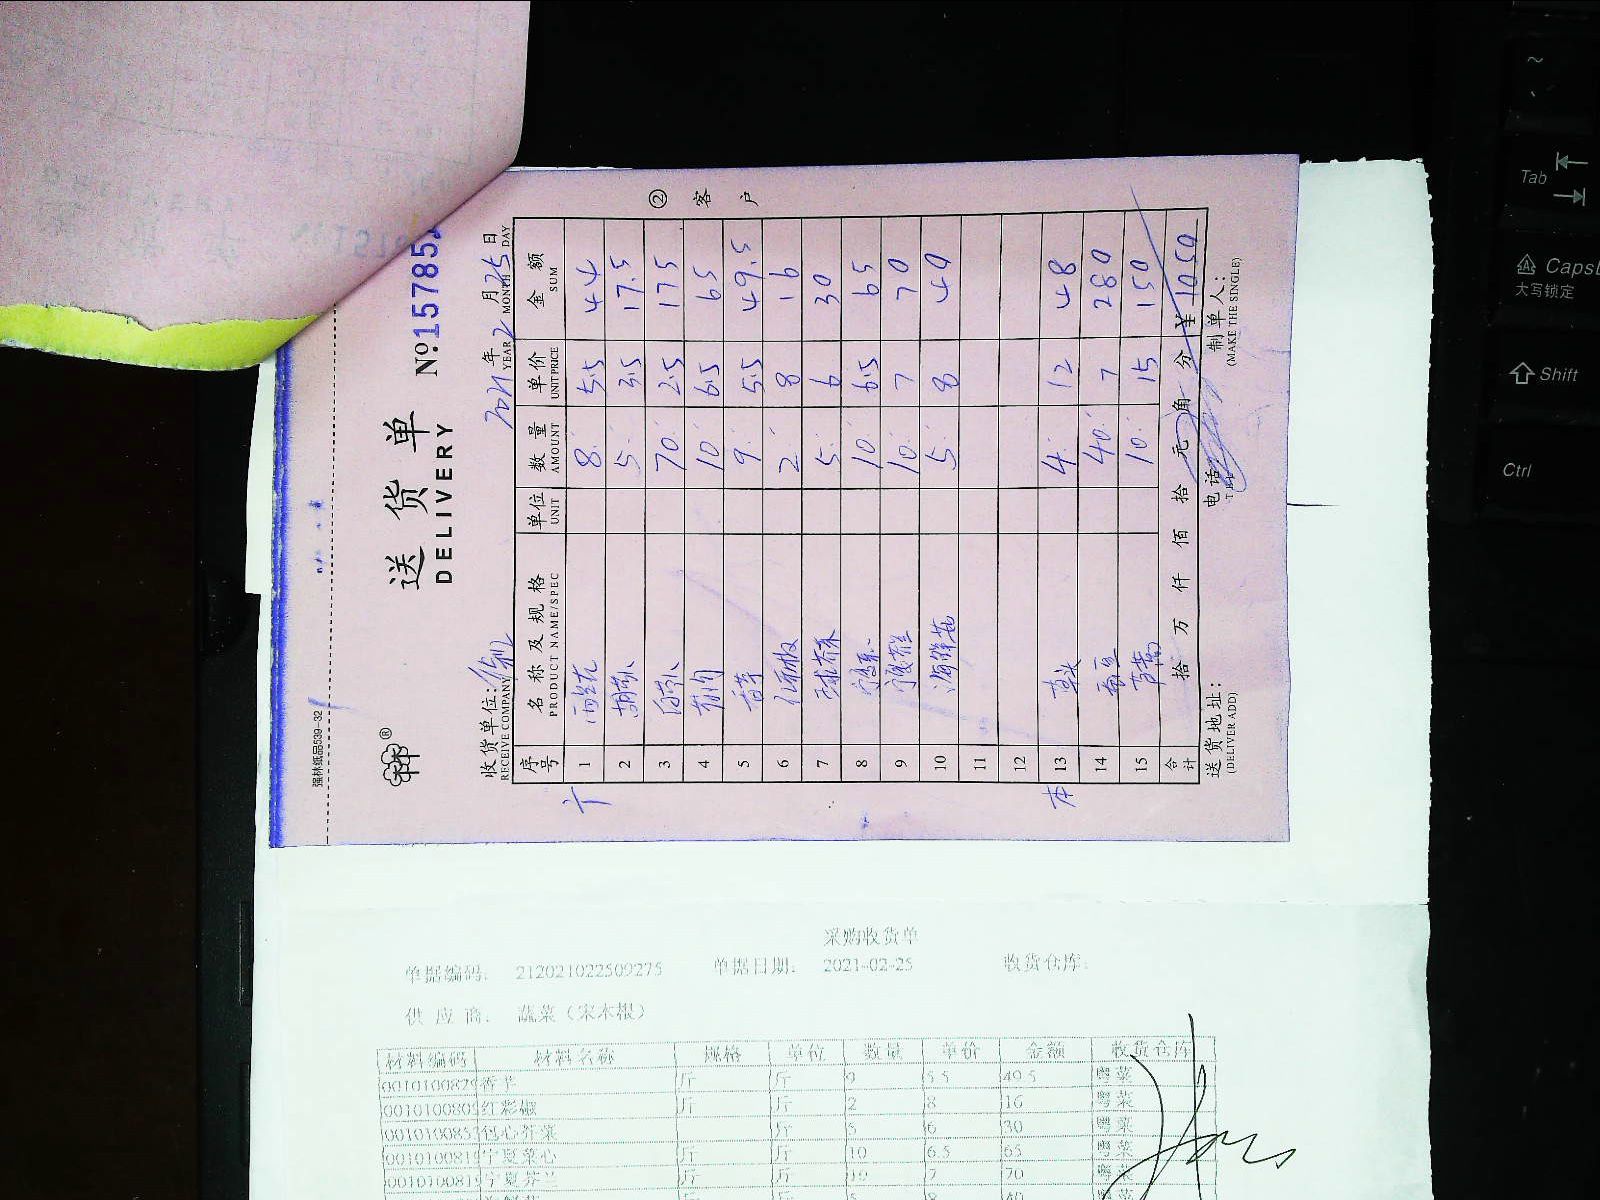 强林纸品539-32
送货单
DELIVERY
№:157852
收货单位:
RECEIVE COMPANY
2021年2月25日
YEAR MONTH DAY
② 客户
序号 名称及规格 单位 数量 单价 金额
PRODUCT NAME/SPEC UNIT AMOUNT UNIT PRICE SUM
1 西生菜 8 5.5 44
2 胡萝卜 5 3.5 17.5
3 白萝卜 70 2.5 175
4 10 6.5 65
5 香芹 9 5.5 49.5
6 红彩椒 2 8 16
7 包心芥菜 5 6 30
8 宁夏菜心 10 6.5 65
9 宁夏芥兰 10 7 70
10 海鲜菇 5 8 40
11
12
13 4 12 48
14 40 7 280
15 10 15 150
合计 拾 万 仟 佰 拾 元 角 分 ¥ 1050
送货地址: 电话 制单人:
(DELIVER ADD) (MAKE THE SINGLE)
采购收货单
单据编码: 212021022509275 单据日期: 2021-02-25 收货仓库:
供应商: 蔬菜（宋木根）
材料编码 材料名称 规格 单位 数量 单价 金额 收货仓库
香芹 斤 斤 9 5.5 49.5 粤菜
红彩椒 斤 斤 2 8 16 粤菜
包心芥菜 斤 5 6 30 粤菜
宁夏菜心 斤 斤 10 6.5 65 粤菜
宁夏芥兰 斤 斤 10 7 70 粤菜
~
Tab
Caps
大写锁定
Shift
Ctrl